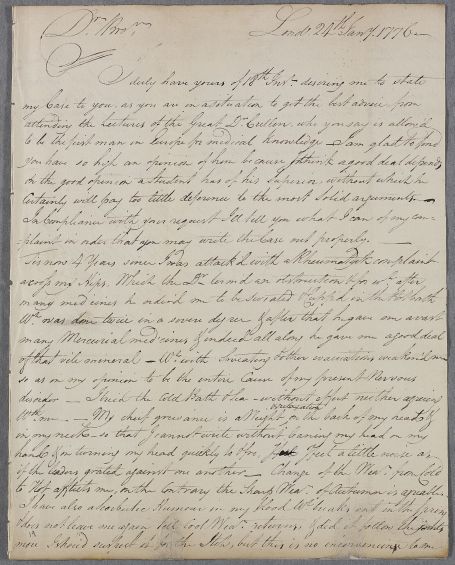 Dr. Bror.
Londo. 24th Jany. 1776 —
I duly have yours of 18th Inst. desiring me to state
my Case to you, as you are in a situation to get the best advice from
attending the Lectures of the Great Dr. Cullen, who you say is allow'd
to be the first man in Europe for medical knowledge — I am glad to find
you have so high an opinion of him because I think a good deal depends
on the good opinion a student has of his Superior, without which he
certainly will pay too little deference to the most solid arguments —
In Compliance with your request I'll tell you what I can of my com-
plaint in order that you may write the Case out properly. —
Tis now 4 Years since I was attack'd with a Rheumatick complaint
across my Hips. Which the Dr. termed an obstruction & for wch. after
many medicines he ordered me to be sweated &
Wch. was done twice in a severe degree & after that he gave me
many Mercurial medicines & indeed all along he gave me a good deal
of that vile mineral — Wch. with Sweating & other evacuations weakened me
so as in my opinion to be the entire Cause of my present Nervous
disorder — I tried the Cold Bath & Sea — without effect neither agreeing
With me — My chief grievance is a Weight on the back of my head &
in my neck so that I cannot write without leaning my head on my
hand & on turning my head quickly to & fro, I feel a little noise as
if the were grated against one another — Change of the Wear. from Cold
to Hot affects me, on the Contrary the Sharp Wear. of Autumn is agreeable
I have also a Scorbutic Humour in my blood Wch. breaks out in the spring
& does not leave me again till cool Wear. returns, did it follow the
more I should suspect it for the but this is no inconvenience to me